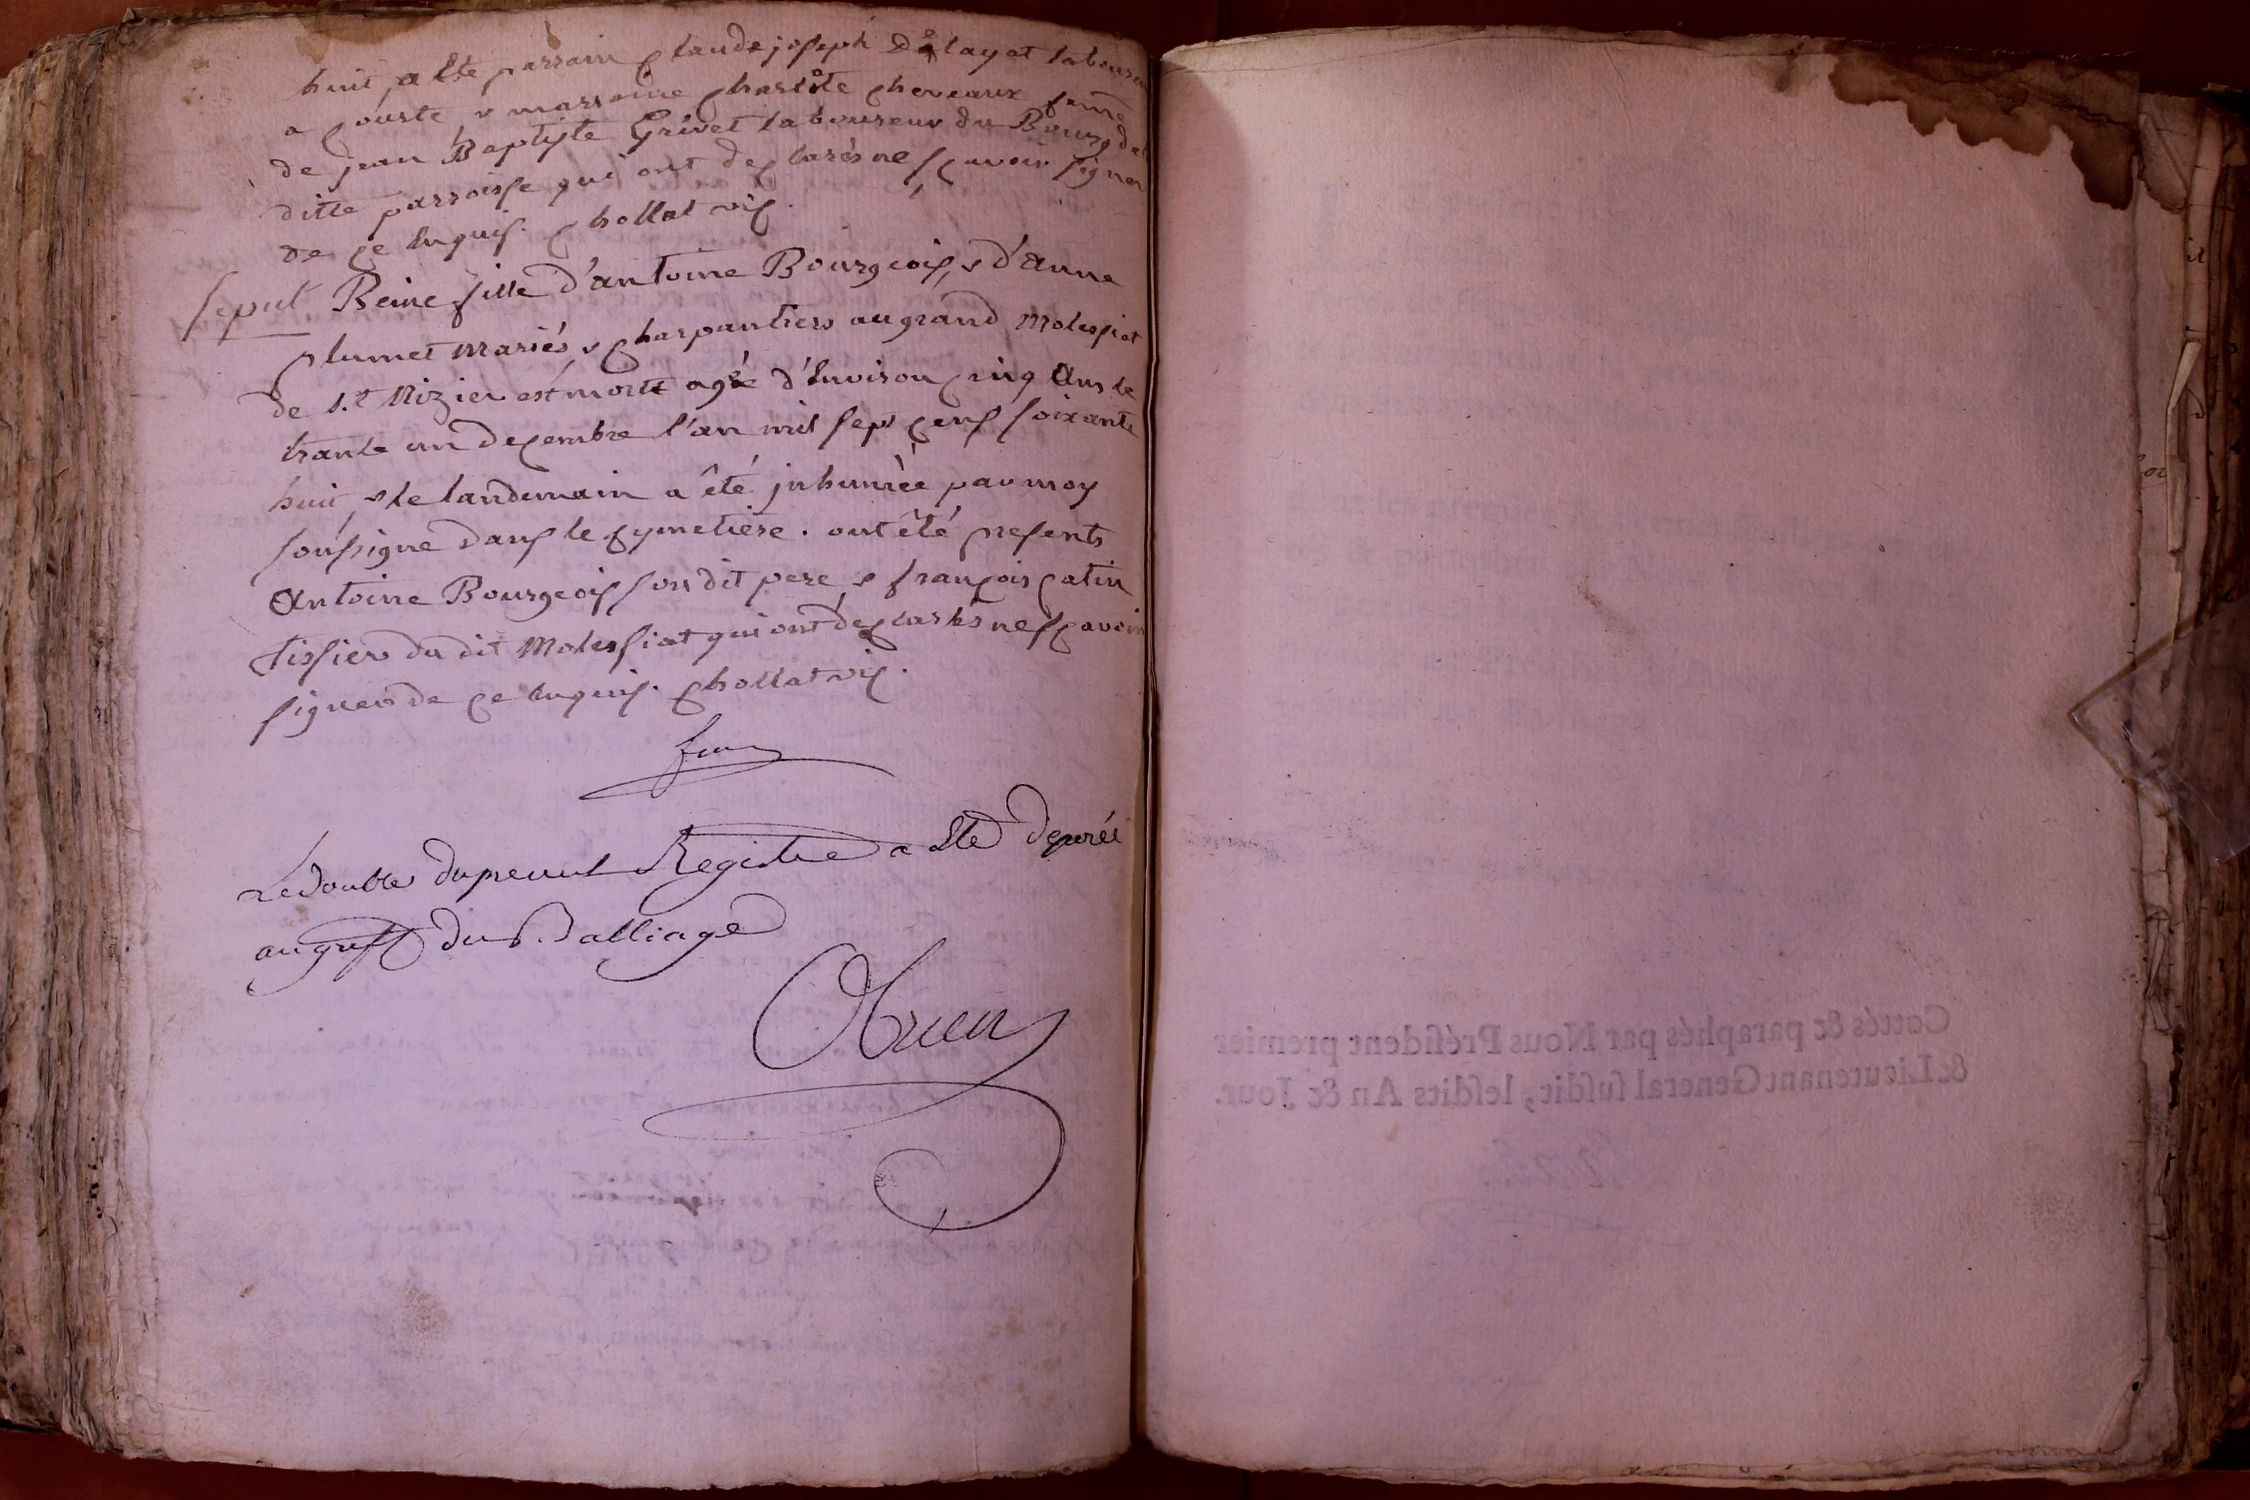 huit, a êté parrain Claude joseph Delayat laboureur
a Courte & marraine Charlote Cheveaux femme
de jean Baptiste Grivet laboureur du Bourg de la
ditte parroisse qui ont declarés ne sçavoir signer
de ce enquis. Chollat vic.
sepul Reine fille d'antoine Bourgeois, & d'anne
plumet mariés, & charpantiers au grand Molessiat
de s.t Nizier est morte agée d'environ cinq ans le
trante un decembre l'an mil sept cens soixante
huit, & le landemain a êté jnhumée par moy
soussigne dans le cymetiere. ont êté presents
antoine Bourgeois son dit pere, & françois catin
tissier du dit Molessiat qui ont declarés ne sçavoir
signer de ce enquis. Chollat vic.
fin
Le Double du present Registre a Eté deposé
au greffe du B. Balliage
Cottés & paraphés par Nous Préſident premier
& Lieutenant General ſuſdit, leſdits An & Jour.